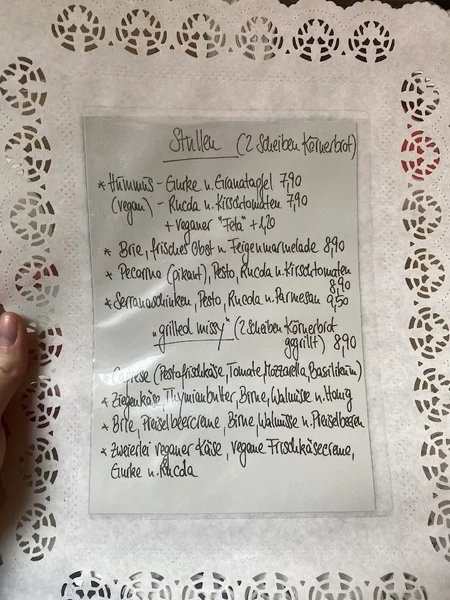 Stullen (2 Scheiben Körnerbrot)
* Hummus - Gurke u. Granatapfel 7,90
(vegan) - Rucola u. Kirschtomaten 7,90
+ veganer "Feta" + 1,20
* Brie, frisches Obst u. Feigenmarmelade 8,90
* Pecorino (pikant), Pesto, Rucola u. Kirschtomaten
8,90
* Serranoschinken, Pesto, Rucola u. Parmesan 9,50
"grilled missy" (2 Scheiben Körnerbrot
gegrillt) 8,90
Caprese (Pestofrischkäse, Tomate, Mozzarella, Basilikum)
* Ziegenkäse, Thymianbutter, Birne, Walnüsse u. Honig
* Brie, Preiselbeercreme, Birne, Walnüsse u. Preiselbeeren
* Zweierlei veganer Käse, vegane Frischkäsecreme,
Gurke u. Rucola